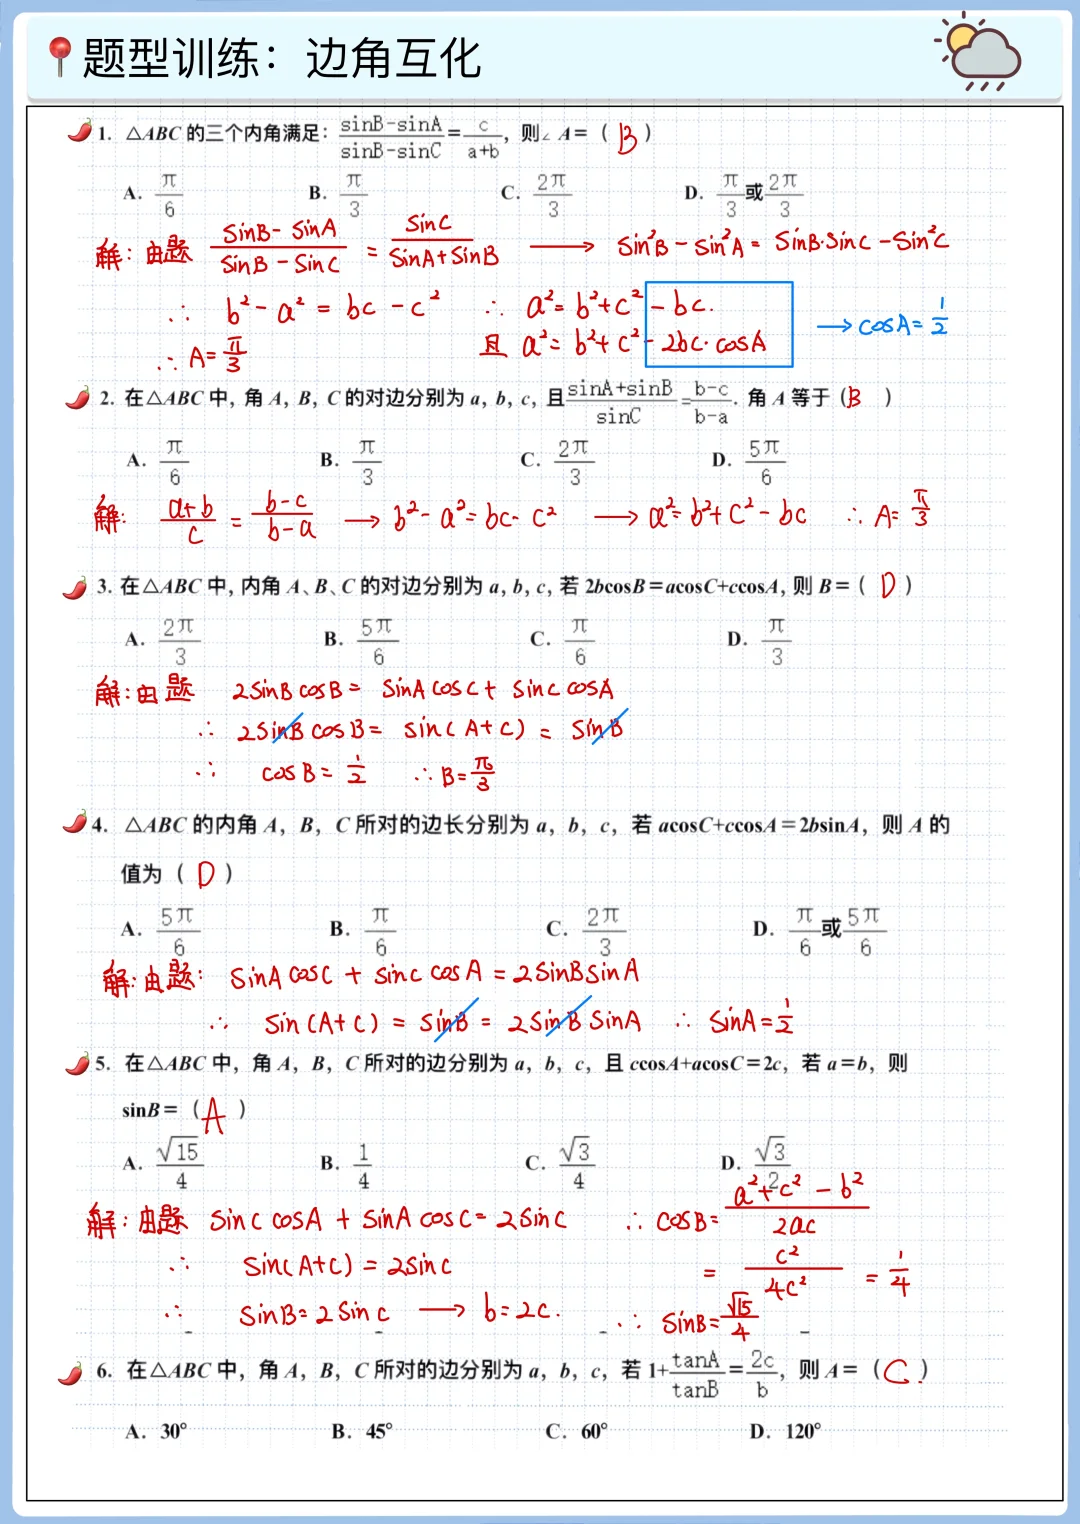 题型训练：边角互化
1. △ABC 的三个内角满足：(sinB-sinA)/(sinB-sinC)=c/(a+b)，则∠A=（ B ）
A. π/6 B. π/3 C. 2π/3 D. π/3或2π/3
解：由题 (sinB-sinA)/(sinB-sinC) = sinC/(sinA+sinB) → sin²B-sin²A=sinB·sinC-sin²C
∴ b²-a²=bc-c² ∴ a²=b²+c²-bc.
∴ A=π/3 且 a²=b²+c²-2bc·cosA → cosA=1/2
2. 在△ABC 中, 角 A, B, C 的对边分别为 a, b, c, 且(sinA+sinB)/sinC=(b-c)/(b-a). 角 A 等于 (B )
A. π/6 B. π/3 C. 2π/3 D. 5π/6
解: (a+b)/c = (b-c)/(b-a) → b²-a²=bc-c² → a²=b²+c²-bc ∴ A=π/3
3. 在△ABC 中, 内角 A、B、C 的对边分别为 a, b, c, 若 2bcosB=acosC+ccosA, 则 B=（ D ）
A. 2π/3 B. 5π/6 C. π/6 D. π/3
解:由题 2sinBcosB= sinAcosC+ sinccosA
∴ 2sinBcosB= sin(A+C) = sinB
∴ cosB=1/2 ∴B=π/3
4. △ABC 的内角 A，B，C 所对的边长分别为 a，b，c，若 acosC+ccosA=2bsinA，则 A 的
值为（ D ）
A. 5π/6 B. π/6 C. 2π/3 D. π/6或5π/6
解:由题: sinAcosC + sinccosA = 2sinBsinA
∴ sin(A+C) = sinB = 2sinBsinA ∴ sinA=1/2
5. 在△ABC 中，角 A，B，C 所对的边分别为 a，b，c，且 ccosA+acosC=2c，若 a=b，则
sinB=（ A ）
A. √15/4 B. 1/4 C. √3/4 D. √3/2
解:由题 sinCcosA + sinAcosC=2sinC ∴ cosB=(a²+c²-b²)/2ac
∴ sin(A+C)=2sinc = c²/4c² = 1/4
∴ sinB=2sinc → b=2c. ∴ sinB=√15/4
6. 在△ABC 中，角 A，B，C 所对的边分别为 a，b，c，若 1+tanA/tanB=2c/b，则 A=（ C ）
A. 30° B. 45° C. 60° D. 120°